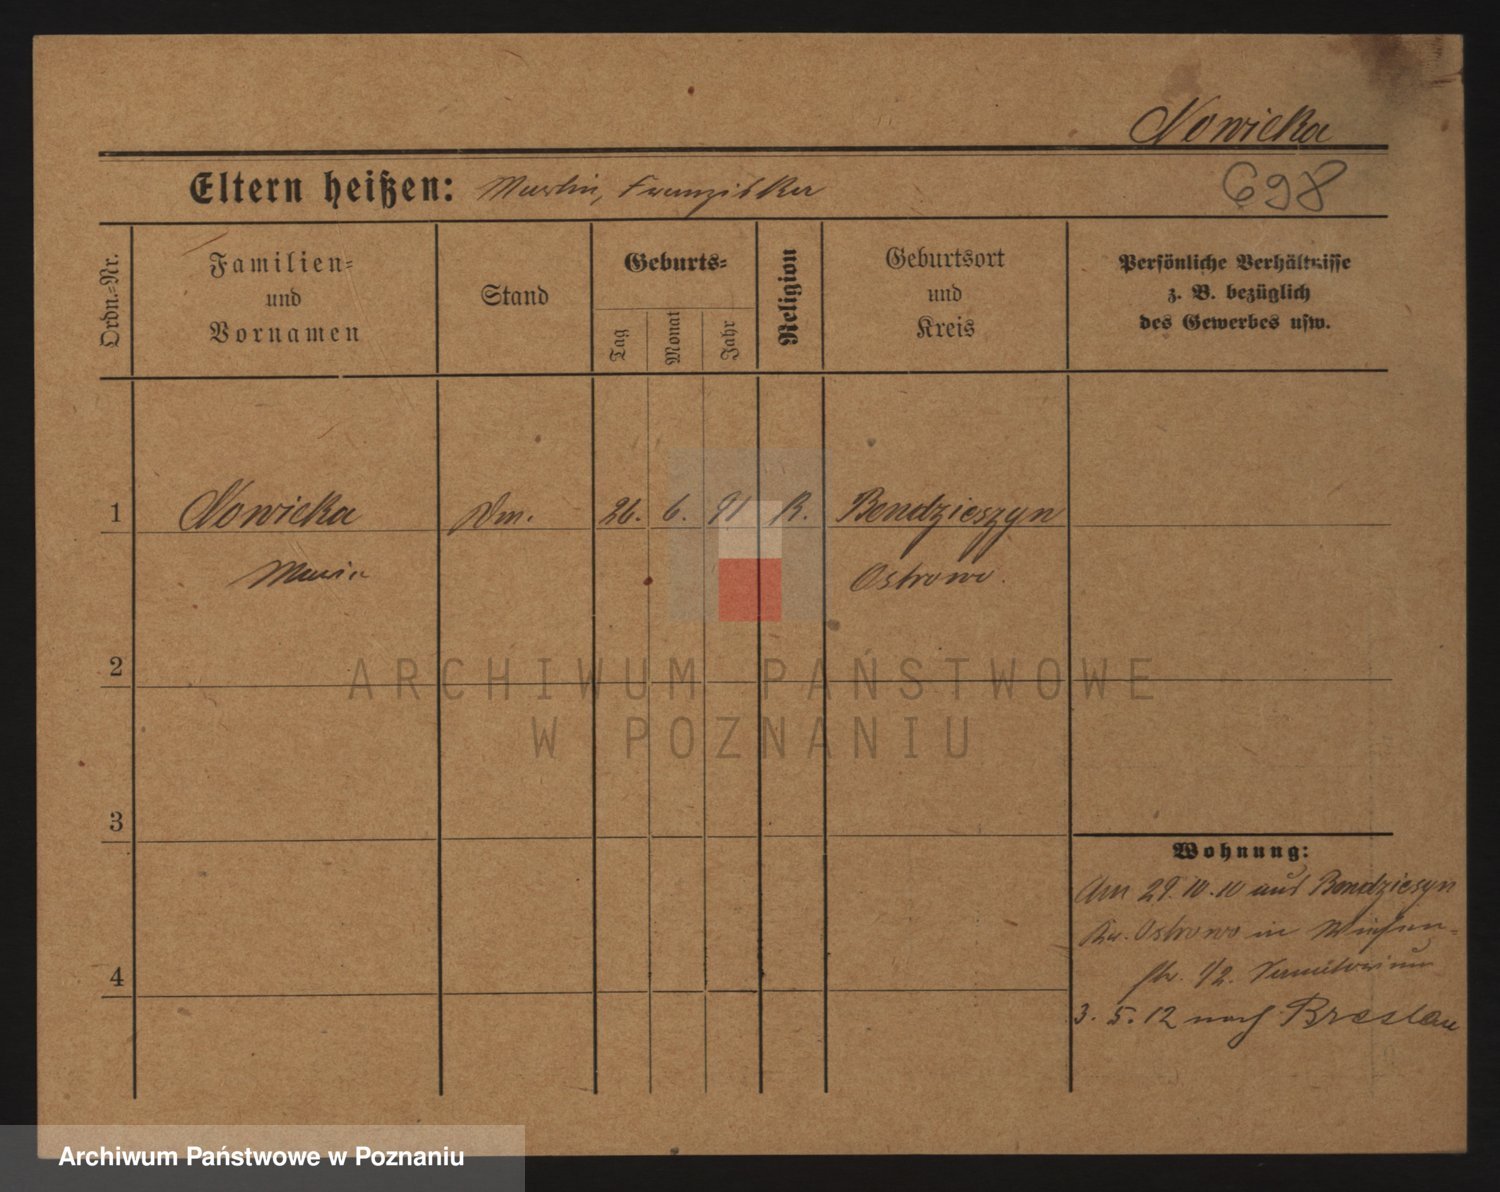 Nowicka
Eltern heißen: Martin, Franziska
698
Ordn.-Nr.
Familien-
und
Vornamen
Stand
Geburts-
Tag
Monat
Jahr
Religion
Geburtsort
und
Kreis
Persönliche Verhältnisse
z. B. bezüglich
des Gewerbes usw.
1 Nowicka Dm. 26. 6. 91 R. Bendzieszyn
Maria Ostrowo.
2
ARCHIWUM PAŃSTWOWE
W POZNANIU
3
Wohnung:
Am 29.10.10 aus Bendziesyn
Kr. Ostrowo in Wiesen-
str. 1/2. Sanitorium
4
3. 5. 12 nach Breslau
Archiwum Państwowe w Poznaniu